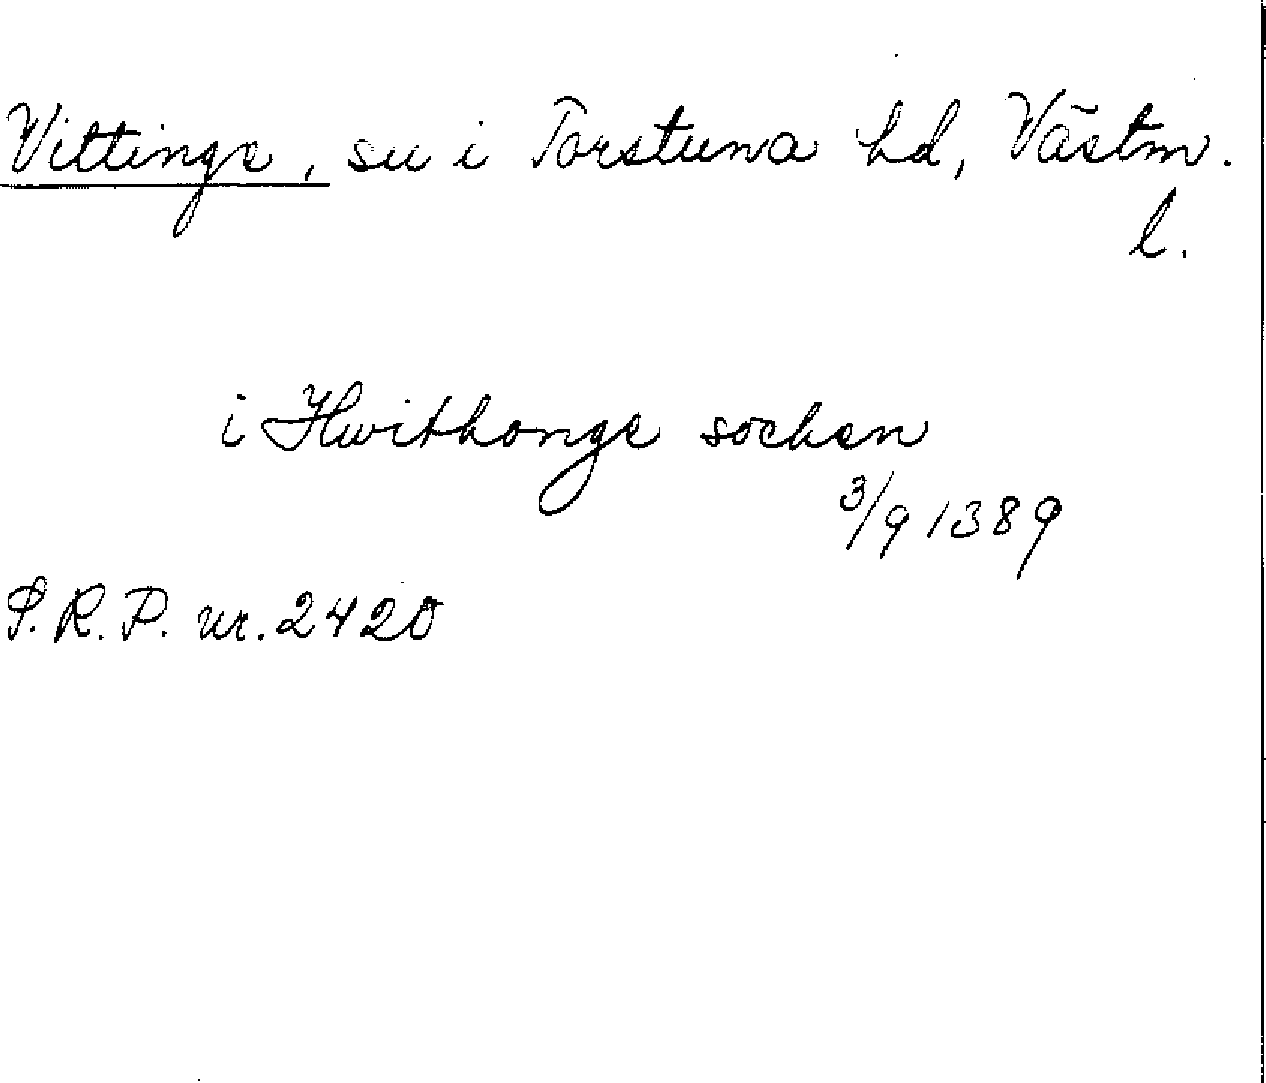 Vittinge, sn i Torstuna hd, Västm.
l.
i Hwithonge socken
3/9 1389
S.R.P. nr. 2420